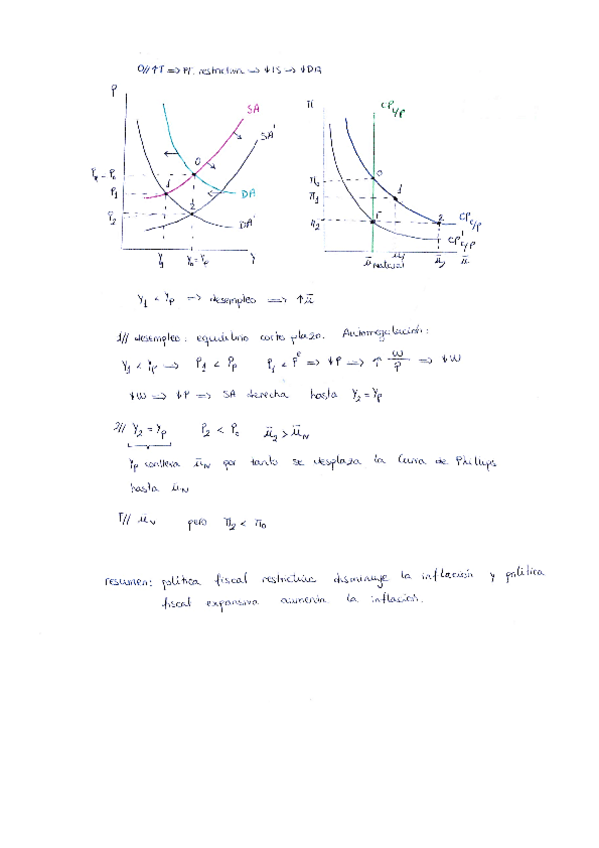 0// ↑T => PF. restrictiva → ↓IS → ↓DA
P
SA
SA'
0
1
2
P₁
P₂
DA
DA'
Y₁
Y₀ = Yₚ
Y
π
CP_L/P
π₀
π₁
π₂
0
1
2
CP_C/P
CP'_C/P
ū natural
ū₁
ū₂
ū
Y₁ < Yₚ => desempleo => ↑ū
1// desempleo: equilibrio corto plazo. Autorregulación:
Y₁ < Yₚ → P₁ < Pₚ P₁ < Pᵉ => ↓P => ↑ W/P => ↓W
↓W => ↓P => SA derecha hasta Y₂ = Yₚ
2// Y₂ = Yₚ P₂ < P₀ ū₂ > ū_N
Yₚ conlleva ū_N por tanto se desplaza la Curva de Phillips
hasta ū_N
F// ū_N pero π₂ < π₀
resumen: política fiscal restrictiva disminuye la inflación y política
fiscal expansiva aumenta la inflación.